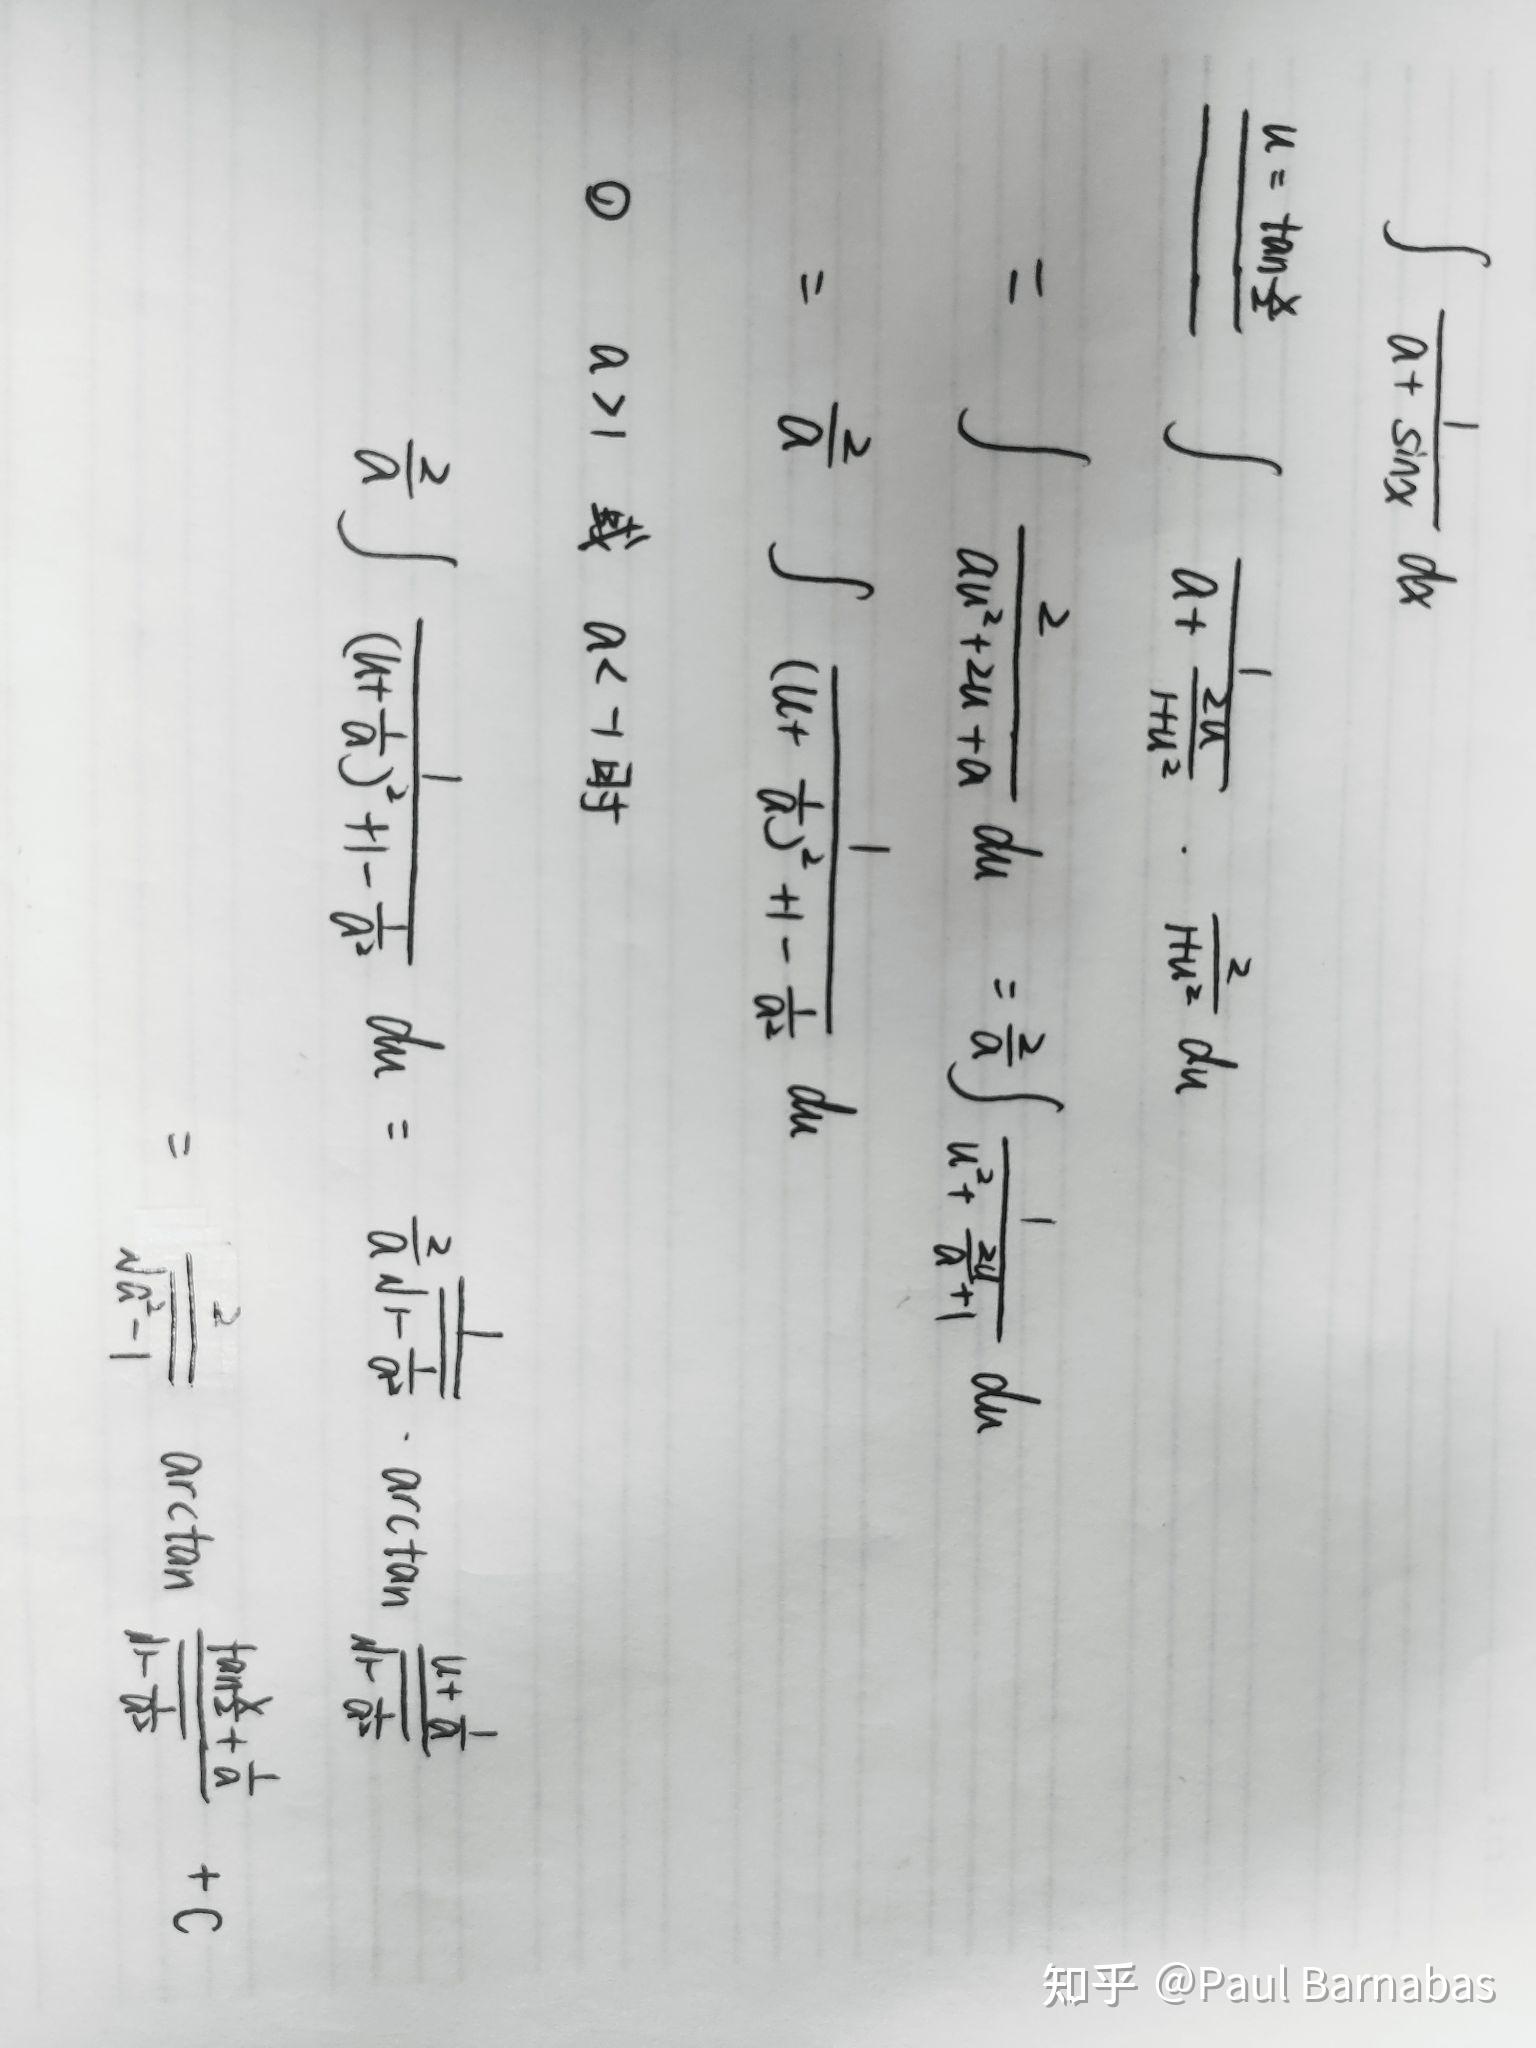 ∫ 1/(a+sinx) dx
u=tan x/2 ∫ 1/(a+ 2u/(1+u²)) · 2/(1+u²) du
= ∫ 2/(au²+2u+a) du = 2/a ∫ 1/(u²+ 2u/a +1) du
= 2/a ∫ 1/((u+ 1/a)² +1- 1/a²) du
① a>1 或 a<-1时
2/a ∫ 1/((u+ 1/a)² +1- 1/a²) du = 2/a 1/√(1- 1/a²) · arctan (u+ 1/a)/√(1- 1/a²)
= 2/√(a²-1) arctan (tan x/2 + 1/a)/√(1- 1/a²) + C
知乎 @Paul Barnabas